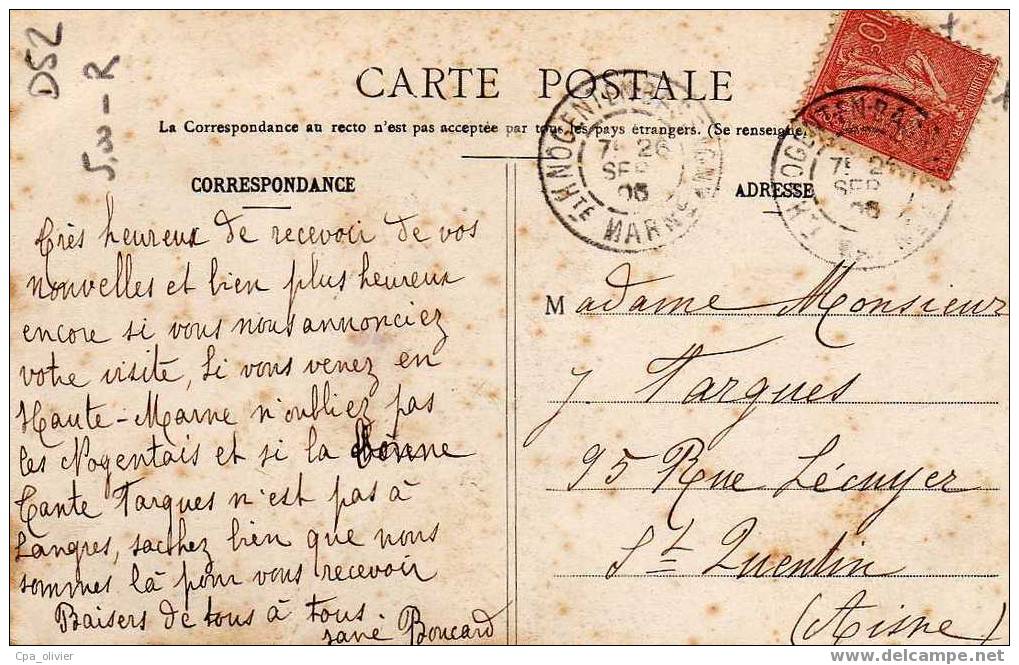 D52
5,00-R
CARTE POSTALE
La Correspondance au recto n'est pas acceptée par tous les pays étrangers. (Se renseigne
CORRESPONDANCE
ADRESSE
NOGENT-EN-BASSIGNY
7E 26
SEPT
06
HTE MARNE
10
NOGENT-EN-BASSIGNY
7E 26
SEPT
06
HTE MARNE
Très heureux de recevoir de vos
nouvelles et bien plus heureux
encore si vous nous annonciez
votre visite, Si vous venez en
Haute-Marne n'oubliez pas
les Nogentais et si la bonne
Tante Targues n'est pas à
Langres, sachez bien que nous
sommes là pour vous recevoir
Baisers de tous à tous.
Jane Boucard
Madame Monsieur
J. Targues
95 Rue Lécuyer
St Quentin
(Aisne)
Cpa_olivier
www.delcampe.net